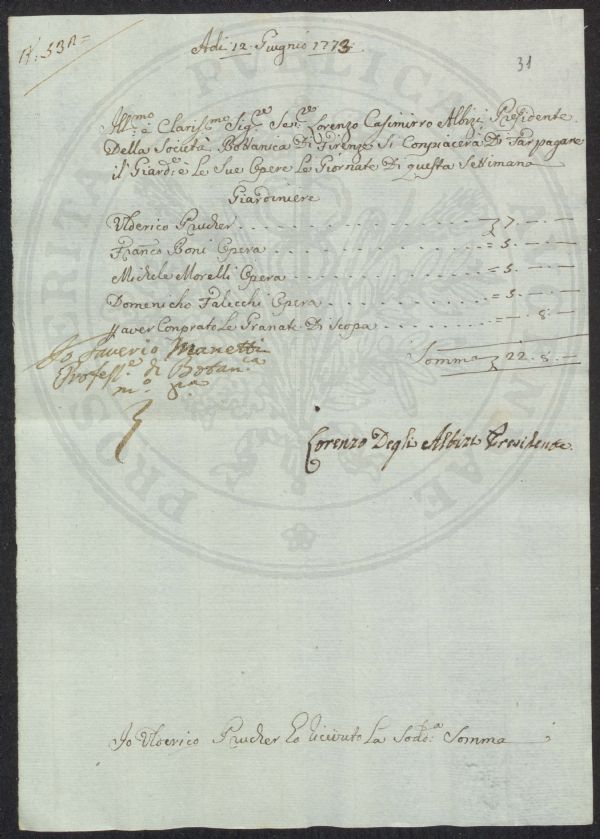 N: 53A=
Adi 12 Giugnio 1773.
31
Ill:mo e Claris:mo Sig:re Se:re Lorenzo Casimirro Albizi Presidente
Della Società Bottanica Di Firenze Si Conpiacerà Di Far pagare
il Giard:e è Le Sue Opere Le Giornate Di questa Settimana
Giardiniere
Ulderico Prucher . . . . . . . . 7 . - . -
Franco Boni Opera . . . . . . . . = 5 . - -
Michele Morelli Opera . . . . . . . . = 5 . - -
Domenicho Falicchi Opera . . . . . . . . = 5 . - -
P aver Conprato Le Granate Di Scopa . . . . . . = - . 8 . -
Somma 22 . 8 . -
Io Saverio Manetti
Profess:e di Botan:ca
m:o p:a
Lorenzo Degli Albizi Presidente.
PROSPERITATI PUBLICAE
Io Ulderico Prucher ho riceuto La Sod:a Somma